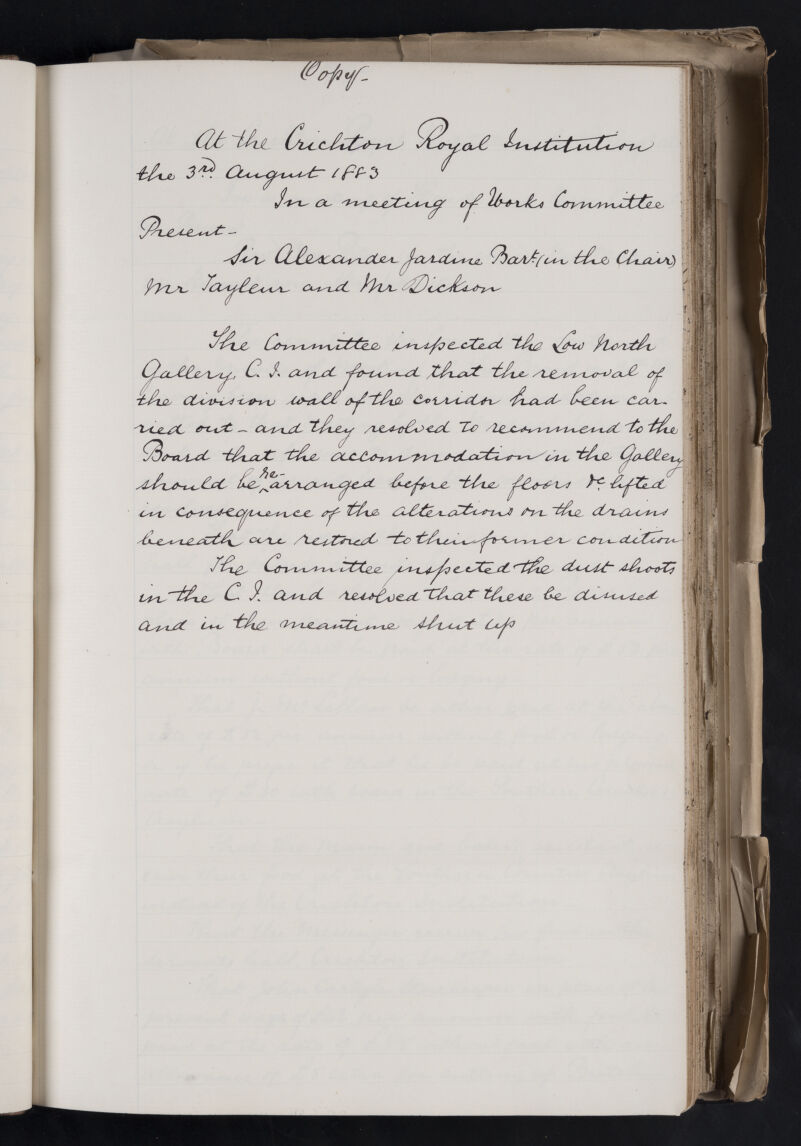 Copy-
At the Crichton Royal Institution
the 3rd. August 1883
In a meeting of Works Committee
Present-
Sir Alexander Jardine Bart. (in the Chair)
Mr Tayleur and Mr Dickson
The Committee inspected the Low North
Gallery, C. I. and found that the removal of
the division wall of the corridor had been car-
ried out - and they resolved to recommend to the
Board that the accommodation in the Gallery
should be re-arranged before the floors &c. lifted
in consequence of the alterations on the drains
beneath are restored to their former condition
The Committee inspected the dust shoots
in the C. I. and resolved that these be disused
and in the meantime shut up